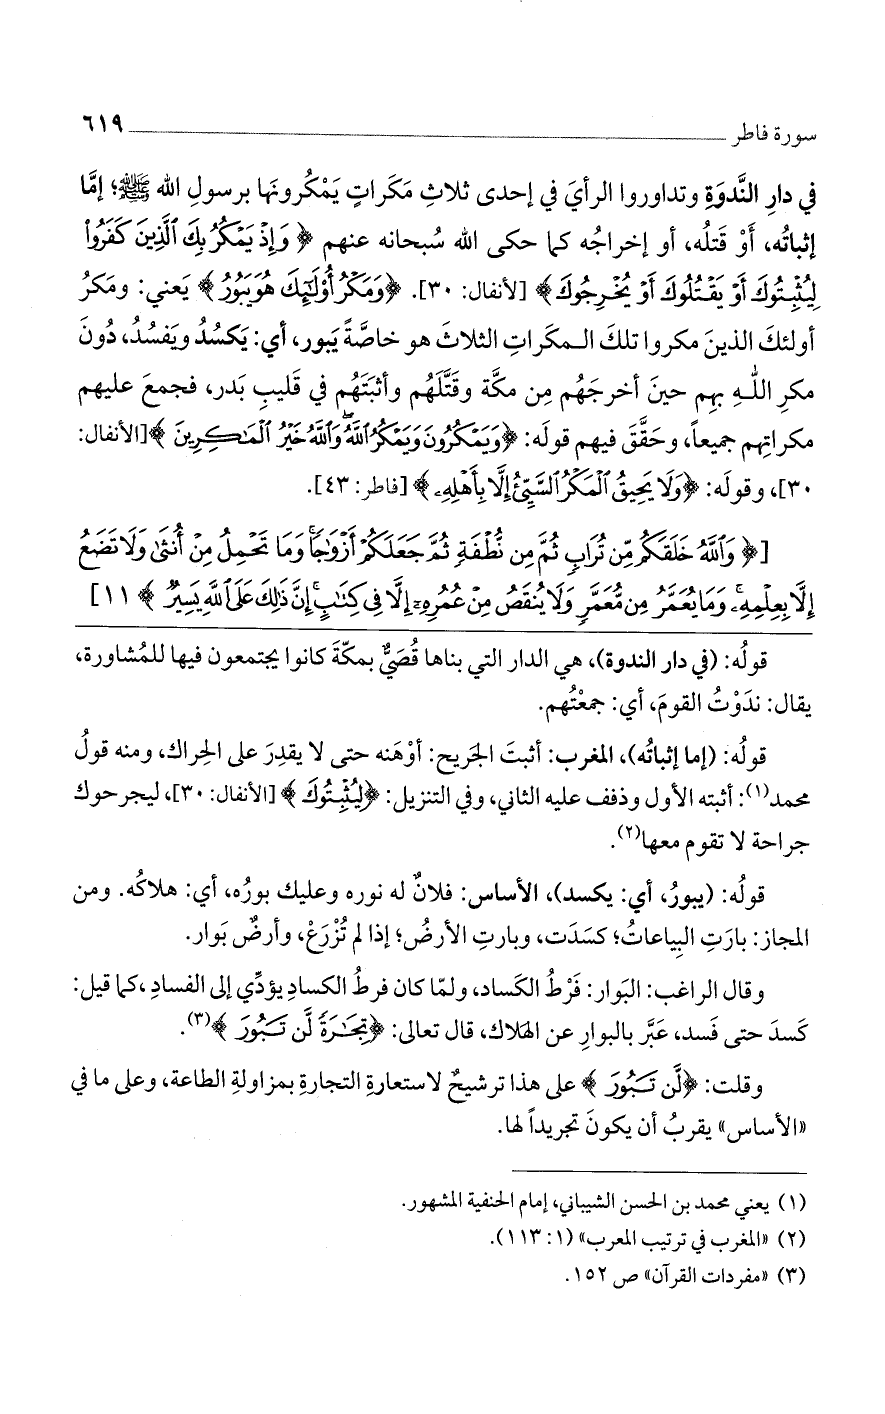 سورة فاطر ٦١٩
في دارِ النَّدوَةِ وتداوروا الرأيَ في إحدى ثلاثِ مَكَراتٍ يَمْكُرونَها برسولِ الله ﷺ؛ إمَّا
إثباتُه، أَوْ قَتلُه، أو إخراجُه كما حكى الله سُبحانه عنهم ﴿وَإِذْ يَمْكُرُ بِكَ ٱلَّذِينَ كَفَرُوا۟
لِيُثْبِتُوكَ أَوْ يَقْتُلُوكَ أَوْ يُخْرِجُوكَ﴾ [لأنفال: ٣٠]. ﴿وَمَكْرُ أُو۟لَٰٓئِكَ هُوَ يَبُورُ﴾ يَعني: ومَكرُ
أولئكَ الذينَ مكروا تلكَ المكَراتِ الثلاثَ هو خاصَّةً يَبور، أي: يَكسُدُ ويَفسُدُ، دُونَ
مكرِ اللهِ بِهم حينَ أخرجَهُم مِن مكَّة وقَتَّلَهُم وأثبَتَهُم في قَليبِ بَدر، فجمعَ عليهم
مكراتِهم جميعاً، وحَقَّقَ فيهم قولَه: ﴿وَيَمْكُرُونَ وَيَمْكُرُ ٱللَّهُ ۖ وَٱللَّهُ خَيْرُ ٱلْمَٰكِرِينَ﴾ [الأنفال:
٣٠]، وقولَه: ﴿وَلَا يَحِيقُ ٱلْمَكْرُ ٱلسَّيِّئُ إِلَّا بِأَهْلِهِۦ﴾ [فاطر: ٤٣].
[﴿وَٱللَّهُ خَلَقَكُم مِّن تُرَابٍ ثُمَّ مِن نُّطْفَةٍ ثُمَّ جَعَلَكُمْ أَزْوَٰجًا ۚ وَمَا تَحْمِلُ مِنْ أُنثَىٰ وَلَا تَضَعُ
إِلَّا بِعِلْمِهِۦ ۚ وَمَا يُعَمَّرُ مِن مُّعَمَّرٍ وَلَا يُنقَصُ مِنْ عُمُرِهِۦٓ إِلَّا فِى كِتَٰبٍ ۚ إِنَّ ذَٰلِكَ عَلَى ٱللَّهِ يَسِيرٌ﴾ ١١]
قولُه: (في دار الندوة)، هي الدار التي بناها قُصَيٌّ بمكّةَ كانوا يجتمعون فيها للمُشاورة،
يقال: ندَوْتُ القومَ، أي: جمعْتُهم.
قولُه: (إما إثباتُه)، المغرب: أثبتَ الجَريح: أوْهَنه حتى لا يقدِرَ على الحِراك، ومنه قولُ
محمد(١): أثبته الأول وذفف عليه الثاني، وفي التنزيل: ﴿لِيُثْبِتُوكَ﴾ [الأنفال: ٣٠]، ليجرحوك
جراحة لا تقوم معها(٢).
قولُه: (يبورُ، أي: يكسد)، الأساس: فلانٌ له نوره وعليك بورُه، أي: هلاكُه. ومن
المجاز: بارَتِ البِياعاتُ؛ كسَدَت، وبارتِ الأرضُ؛ إذا لم تُزْرَعْ، وأرضٌ بَوار.
وقال الراغب: البَوار: فَرْطُ الكَساد، ولمّا كان فرطُ الكسادِ يؤدِّي إلى الفسادِ ،كما قيل:
كَسدَ حتى فَسد، عَبَّر بالبوارِ عن الهلاك، قال تعالى: ﴿تِجَٰرَةً لَّن تَبُورَ﴾(٣).
وقلت: ﴿لَّن تَبُورَ﴾ على هذا ترشيحٌ لاستعارةِ التجارةِ بمزاولةِ الطاعة، وعلى ما في
«الأساس» يقربُ أن يكونَ تجريداً لها.
(١) يعني محمد بن الحسن الشيباني، إمام الحنفية المشهور.
(٢) «المغرب في ترتيب المعرب» (١: ١١٣).
(٣) «مفردات القرآن» ص ١٥٢.